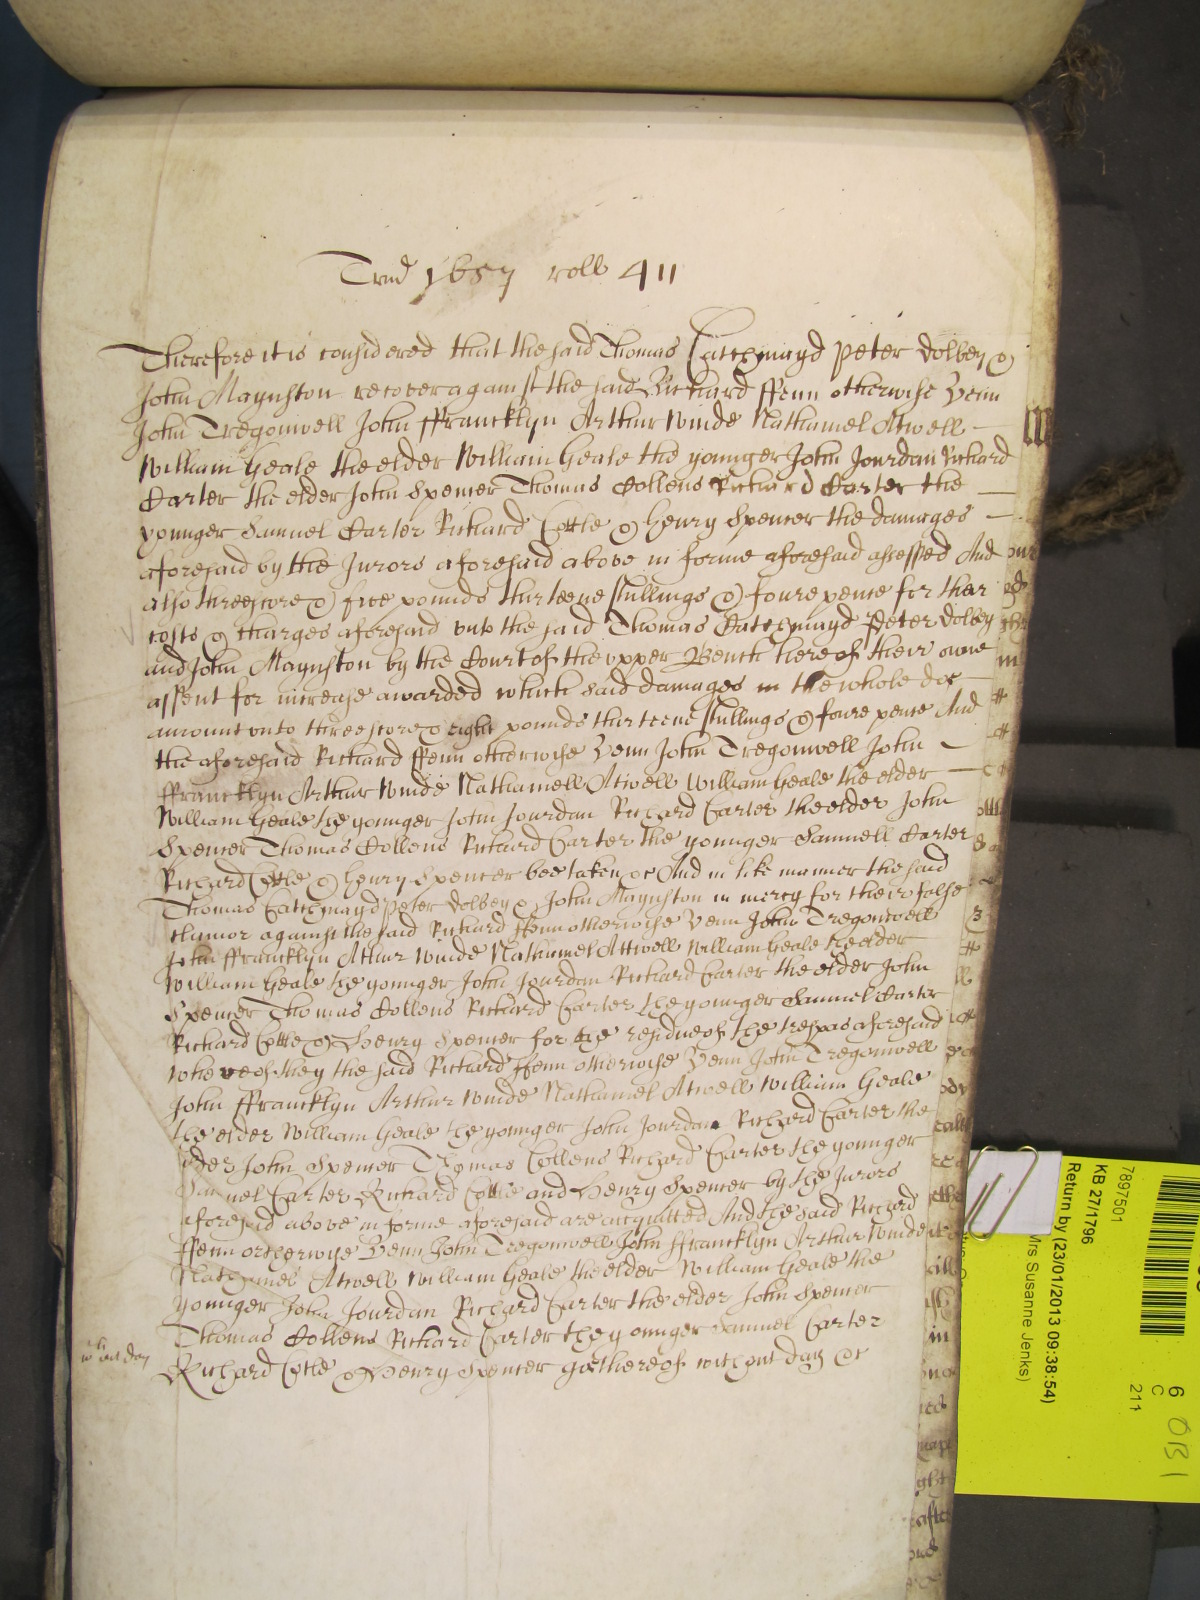 Trin 1657 roll 411
Therefore it is considered that the said Thomas Catchmayd Peter Dolbey &
John Maynston recover against the said Richard ffenn otherwise Venn
John Tregonwell John ffrancklyn Arthur Winde Nathaniel Atwell
William Geale the elder William Geale the younger John Jourdan Richard
Carter the elder John Spencer Thomas Collens Richard Carter the
younger Samuel Carter Richard Cottle & Henry Spencer the damages
aforesaid by the Jurors aforesaid above in forme aforesaid assessed And
also threescore & five pounds thirteene shillings & foure pence for their
costs & charges aforesaid unto the said Thomas Catchmayd Peter Dolbey
and John Maynston by the Court of the upper Bench here of their owne
assent for increase awarded which said damages in the whole doe
amount unto threescore & eight pounds thirteene shillings & foure pence And
the aforesaid Richard ffenn otherwise Venn John Tregonwell John
ffrancklyn Arthur Winde Nathaniell Atwell William Geale the elder
William Geale the younger John Jourdan Richard Carter the elder John
Spencer Thomas Collens Richard Carter the younger Samuell Carter
Richard Cottle & Henry Spencer bee taken &c And in like manner the said
Thomas Catchmayd Peter Dolbey & John Maynston in mercy for their false
clamor against the said Richard ffenn otherwise Venn John Tregonwell
John ffrancklyn Athur Winde Nathaniel Attwell William Geale the elder
William Geale the younger John Jourdan Richard Carter the elder John
Spencer Thomas Collens Richard Carter the younger Samuel Carter
Richard Cottle & Henry Spencer for the residue of the trespas aforesaid
whereof they the said Richard ffenn otherwise Venn John Tregonwell
John ffrancklyn Arthur Winde Nathaniel Atwell William Geale
the elder William Geale the younger John Jourdan Richard Carter the
elder John Spencer Thomas Collens Richard Carter the younger
Samuel Carter Richard Cottle and Henry Spencer by the Jurors
aforesaid above in forme aforesaid are acquitted And the said Richard
ffenn otherwise Venn John Tregonwell John ffrancklyn Arthur Winde
Nathaniel Atwell William Geale the elder William Geale the
younger John Jourdan Richard Carter the elder John Spencer
Thomas Collens Richard Carter the younger Samuel Carter
Richard Cottle & Henry Spencer goe thereof without day &c
day
7897501
KB 27/1796
Return by (23/01/2013 09:38:54)
Mrs Susanne Jenks)
6
C
211